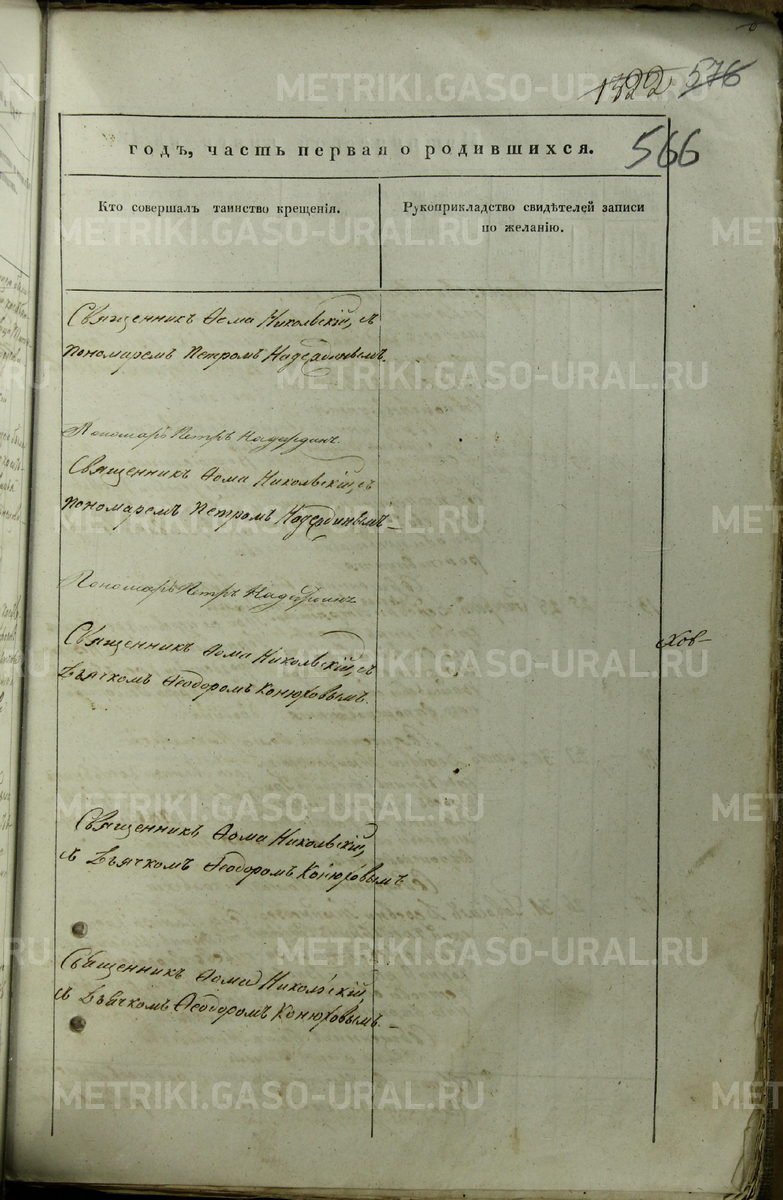 1322 576
566
годъ, часть первая о родившихся.
Кто совершалъ таинство крещенія.
Рукоприкладство свидѣтелей записи
по желанію.
Священникъ Ѳома Никольскій, съ
пономаремъ Петромъ Надеринымъ.
Пономарь Петръ
Священникъ Ѳома Никольскій, съ
пономаремъ Петромъ
Пономарь Петръ
Священникъ Ѳома Никольскій, съ
дьячкомъ Ѳеодоромъ Конюховымъ.
Священникъ Ѳома Никольскій,
съ дьячкомъ Ѳеодоромъ Конюховымъ
Священникъ Ѳома Никольскій,
съ дьячкомъ Ѳеодоромъ Конюховымъ.
METRIKI.GASO-URAL.RU